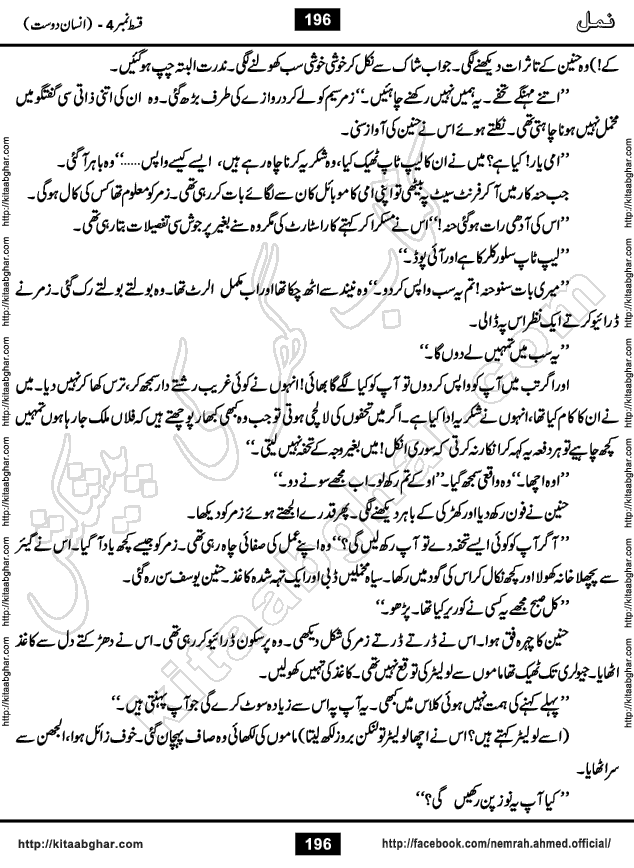 نمل
196
قسط نمبر 4 - (انسان دوست)
کے!) وہ حنین کے تاثرات دیکھنے لگی۔ جواب شاک سے نکل کر خوشی خوشی سب کھولنے لگی۔ ندرت البتہ چپ ہو گئیں۔
’’اتنے مہنگے تحفے۔ یہ ہمیں نہیں رکھنے چاہئیں۔‘‘ زمر سیم کو لے کر دروازے کی طرف بڑھ گئی۔ وہ ان کی اتنی ذاتی سی گفتگو میں
مخل نہیں ہونا چاہتی تھی۔ نکلتے ہوئے اس نے حنین کی آواز سنی۔
’’امی یار! کیا ہے؟ میں نے ان کا لیپ ٹاپ ٹھیک کیا، وہ شکریہ کرنا چاہ رہے ہیں، ایسے کیسے واپس.....‘‘ وہ باہر آ گئی۔
جب حنہ کار میں آ کر فرنٹ سیٹ پہ بیٹھی تو اپنی امی کا موبائل کان سے لگائے بات کر رہی تھی۔ زمر کو معلوم تھا کس کی کال ہو گی۔
’’اس کی آدھی رات ہو گئی حنہ!‘‘ اس نے مسکرا کر کہتے کار اسٹارٹ کی مگر وہ سنے بغیر پرجوش سی تفصیلات بتا رہی تھی۔
’’لیپ ٹاپ سلور کلر کا ہے اور آئی پوڈ۔‘‘
’’میری بات سنو حنہ! تم یہ سب واپس کر دو۔‘‘ وہ نیند سے اٹھ چکا تھا اور اب مکمل الرٹ تھا۔ وہ بولتے بولتے رک گئی۔ زمر نے
ڈرائیو کرتے ایک نظر اس پہ ڈالی۔
’’یہ سب میں تمہیں لے دوں گا۔‘‘
اور اگر تب میں آپ کو واپس کر دوں تو آپ کو کیا لگے گا بھائی! انہوں نے کوئی غریب رشتے دار سمجھ کر، ترس کھا کر نہیں دیا۔ میں
نے ان کا کام کیا تھا، انہوں نے شکریہ ادا کیا ہے۔ اگر میں تحفوں کی لالچی ہوتی تو جب وہ کبھی کبھار پوچھتے ہیں کہ فلاں ملک جا رہا ہوں تمہیں
کچھ چاہیے تو ہر دفعہ یہ کہہ کر انکار نہ کرتی کہ سوری انکل! میں بغیر وجہ کے تحفہ نہیں لیتی۔‘‘
’’اوہ اچھا۔‘‘ وہ واقعی سمجھ گیا۔ ’’اوکے تم رکھ لو۔ اب مجھے سونے دو۔‘‘
حنین نے فون رکھ دیا اور کھڑکی کے باہر دیکھنے لگی۔ پھر قدرے الجھتے ہوئے زمر کو دیکھا۔
’’آگر آپ کو کوئی ایسے تحفہ دے تو آپ رکھ لیں گی؟‘‘ وہ اپنے عمل کی صفائی چاہ رہی تھی۔ زمر کو جیسے کچھ یاد آ گیا۔ اس نے گیئر
سے پچھلا خانہ کھولا اور کچھ نکال کر اس کی گود میں رکھا۔ سیاہ مخملیں ڈبی اور ایک تہہ شدہ کاغذ۔ حنین یوسف سن رہ گئی۔
’’کل صبح مجھے یہ کسی نے کوریر کیا تھا۔ پڑھو۔‘‘
حنین کا چہرہ فق ہوا۔ اس نے ڈرتے ڈرتے زمر کی شکل دیکھی۔ وہ پرسکون ڈرائیو کر رہی تھی۔ اس نے دھڑکتے دل سے کاغذ
اٹھایا۔ جیولری تک ٹھیک تھا ماموں سے لو لیٹر کی توقع نہیں تھی۔ کاغذ کی تہیں کھولیں۔
’’پہلے کہنے کی ہمت نہیں ہوئی کلاس میں کبھی۔ یہ آپ پہ اس سے زیادہ سوٹ کرے گی جو آپ پہنتی ہیں۔‘‘
(اسے لو لیٹر کہتے ہیں؟ اس نے اچھا لو لیٹر تو لنکن بروز لکھ لیتا) ماموں کی لکھائی وہ صاف پہچان گئی۔ خوف زائل ہوا، الجھن سے
سر اٹھایا۔
’’کیا آپ یہ نوز پن رکھیں گی؟‘‘
http://kitaabghar.com
196
http://facebook.com/nemrah.ahmed.official/